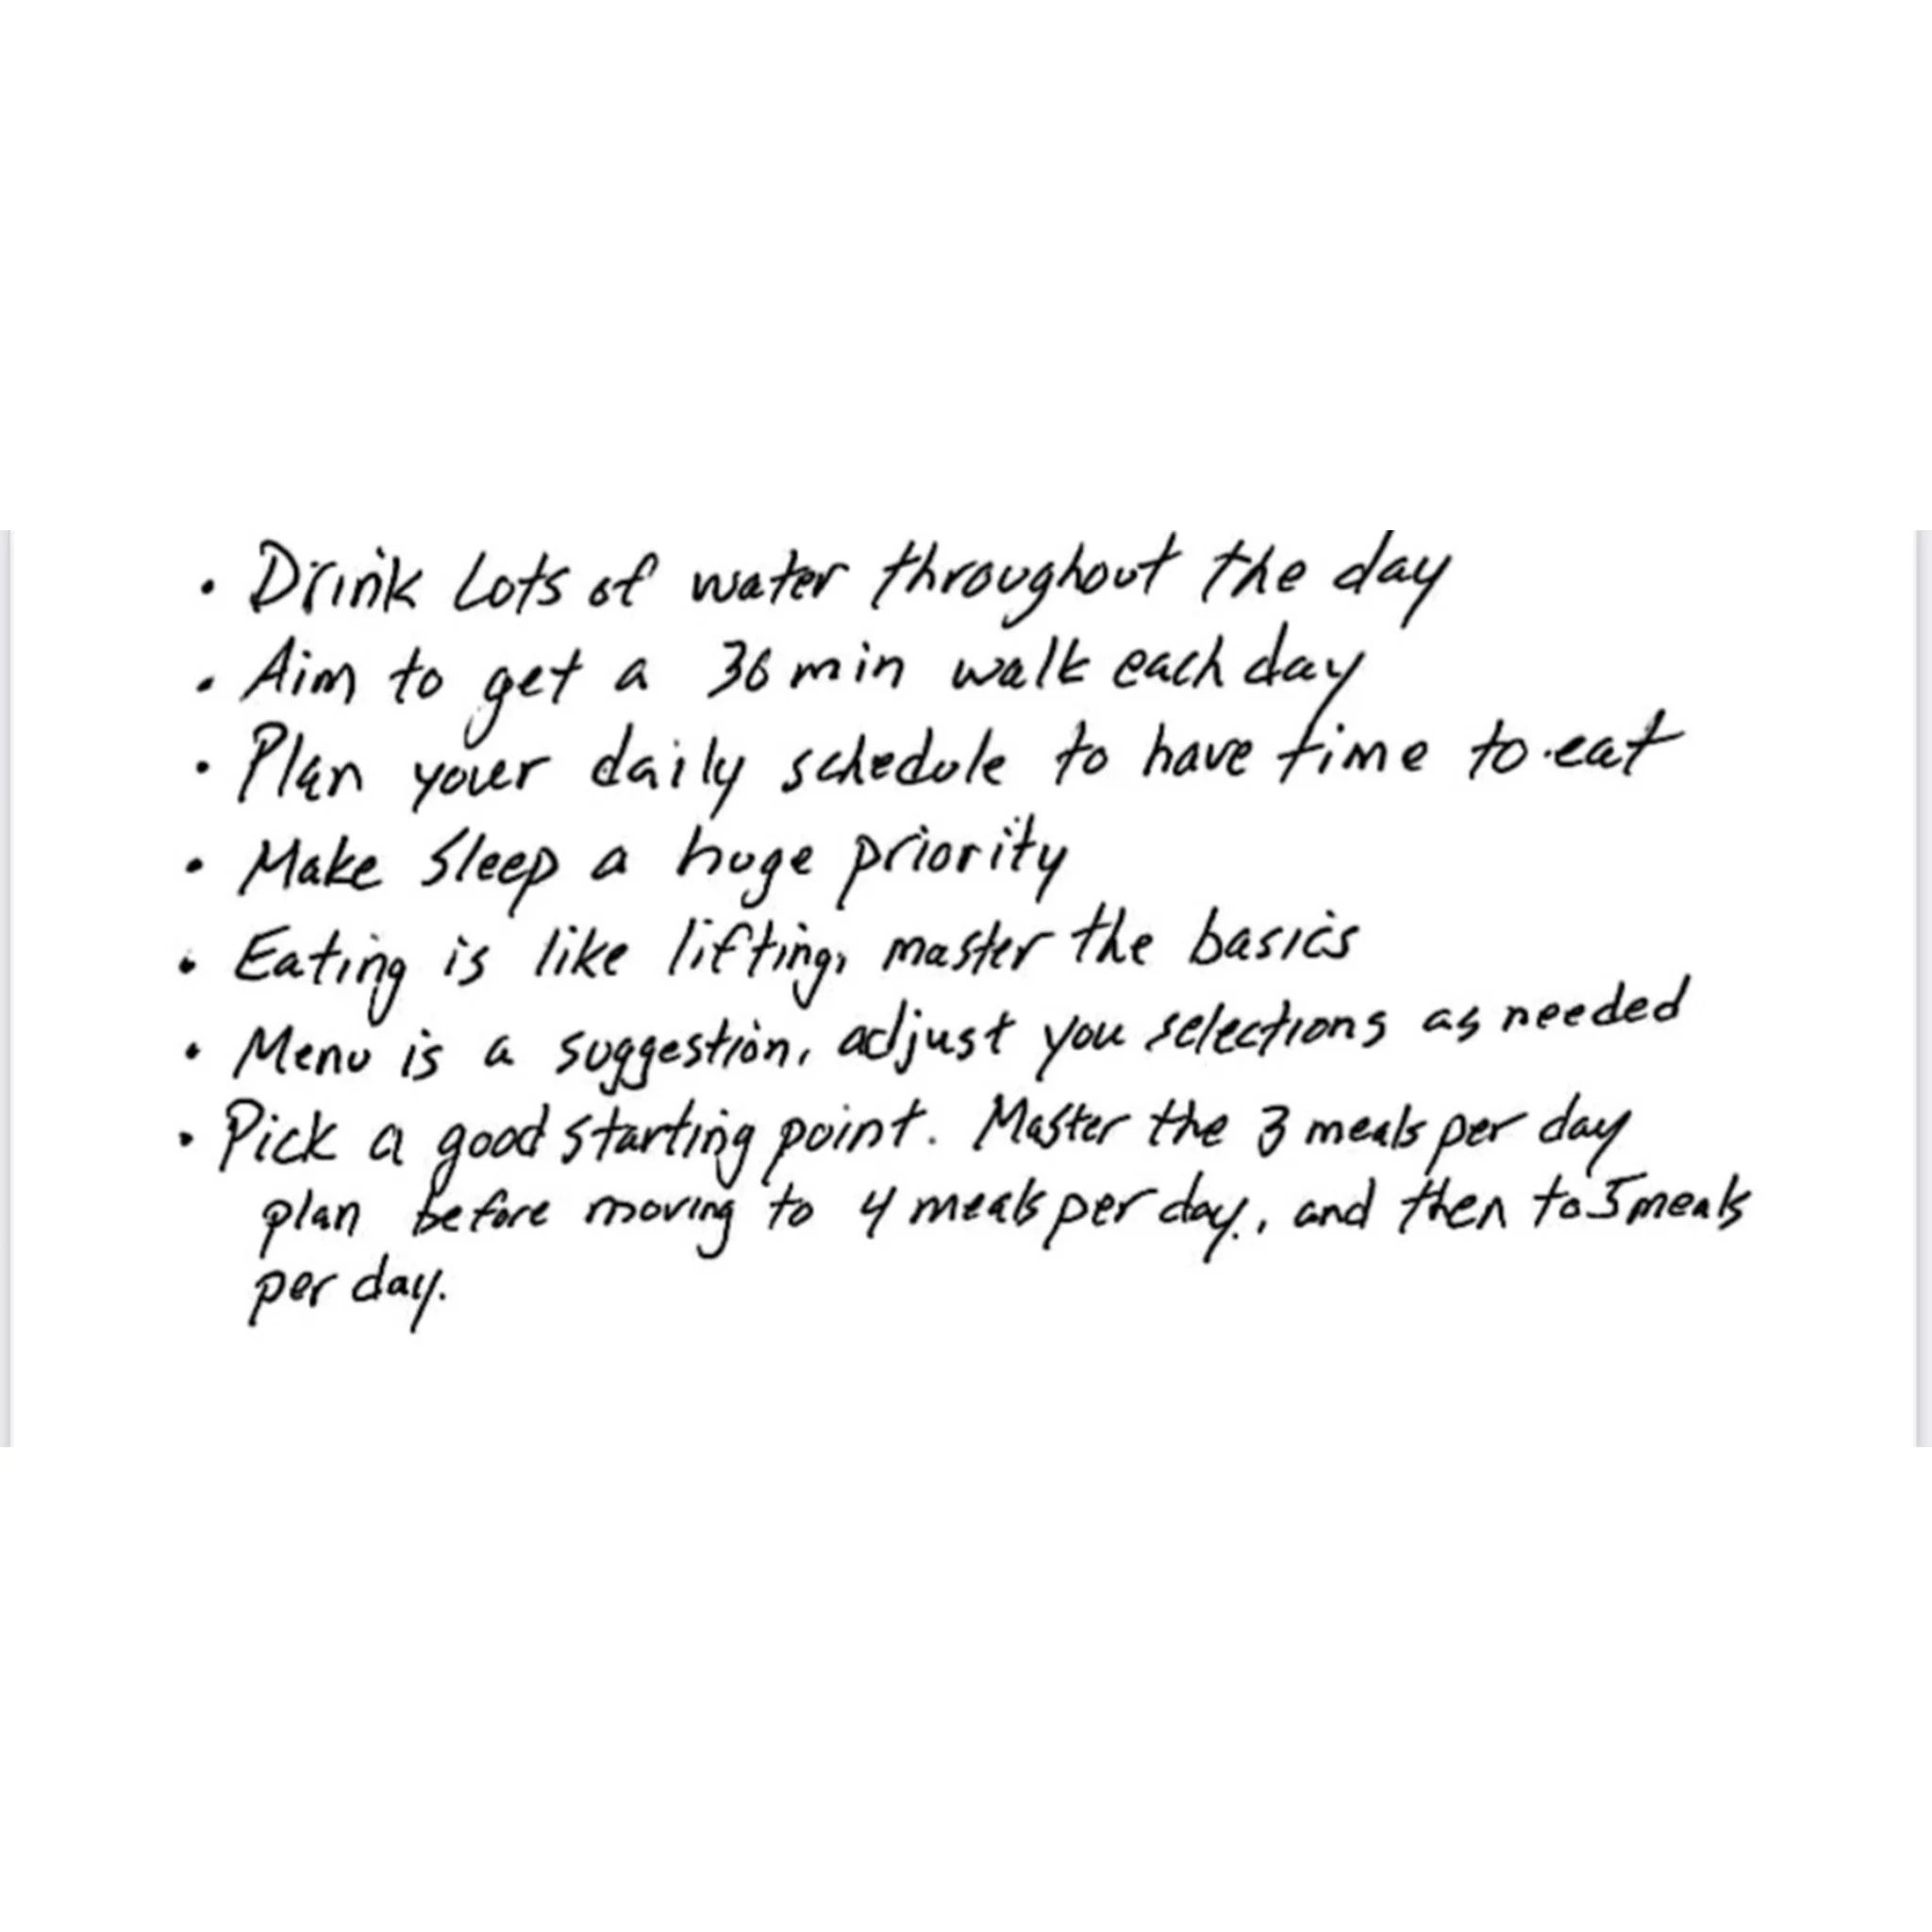 • Drink Lots of water throughout the day
• Aim to get a 30 min walk each day
• Plan your daily schedule to have time to eat
• Make sleep a huge priority
• Eating is like lifting, master the basics
• Menu is a suggestion, adjust you selections as needed
• Pick a good starting point. Master the 3 meals per day
plan before moving to 4 meals per day., and then to 5 meals
per day.